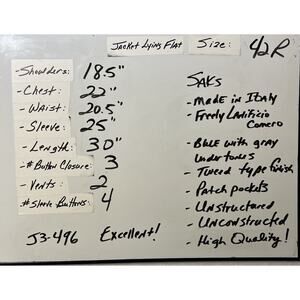 Jacket Lying Flat Size: 42R
- Shoulders: 18.5"
- Chest: 22"
- Waist: 20.5"
- Sleeve: 25"
- Length: 30"
- # Button Closure: 3
- Vents: 2
# Sleeve Buttons: 4
J3-496 Excellent!
SAKS
- Made in Italy
- Freely Lanificio
Comero
- Blue with gray
undertones
- Tweed type finish
- Patch pockets
- Unstructured
- Unconstructed
- High Quality!